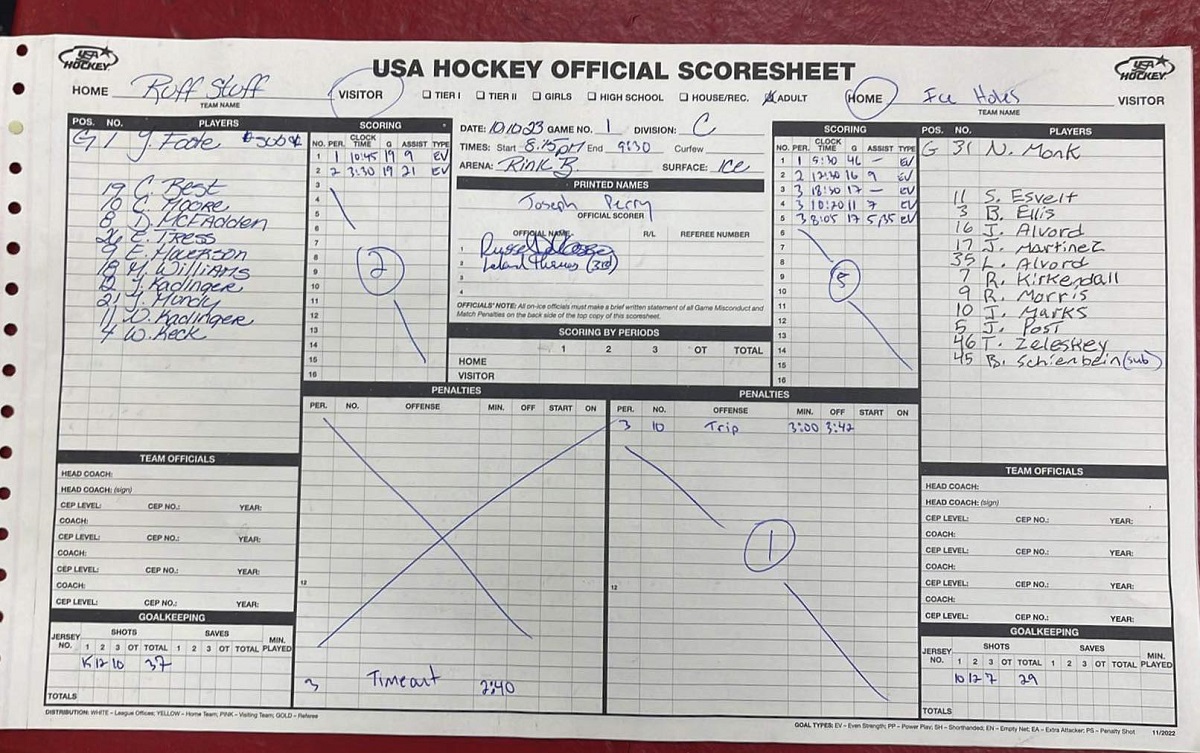 USA HOCKEY
USA HOCKEY OFFICIAL SCORESHEET
USA HOCKEY
HOME Ruff Stuff VISITOR
TEAM NAME
☐ TIER I ☐ TIER II ☐ GIRLS ☐ HIGH SCHOOL ☐ HOUSE/REC. ☒ ADULT
HOME Ice Holes VISITOR
TEAM NAME
POS. NO. PLAYERS
G 1 J. Foote
19 C. Best
10 C. Moore
8 D. McFadden
26 E. Tress
9 E.
18 M. Williams
12 J. Kadinger
21 J. Mundy
11 W. Kadinger
4 W. Keck
SCORING
NO. PER. CLOCK TIME G ASSIST TYPE
1 1 10:45 19 9 EV
2 2 3:30 19 21 EV
3
4
5
6
7
8
9
10
11
12
13
14
15
16
2
DATE: 10.10.23 GAME NO. 1 DIVISION: C
TIMES: Start 8:15pm End 9:30 Curfew
ARENA: Rink B SURFACE: Ice
PRINTED NAMES
Joseph Perry
OFFICIAL SCORER
OFFICIAL NAME R/L REFEREE NUMBER
1
2
3
4
OFFICIALS' NOTE: All on-ice officials must make a brief written statement of all Game Misconduct and
Match Penalties on the back side of the top copy of this scoresheet.
SCORING BY PERIODS
1 2 3 OT TOTAL
HOME
VISITOR
SCORING
NO. PER. CLOCK TIME G ASSIST TYPE
1 1 5:30 46 – EV
2 2 12:30 16 9 EV
3 3 18:30 17 – EV
4 3 10:20 11 7 EV
5 3 8:05 17 5,35 EV
6
7
8
9
10
11
12
13
14
15
16
5
POS. NO. PLAYERS
G 31 N. Monk
11 S. Esvelt
3 B. Ellis
16 J. Alvord
17 J. Martinez
35 L. Alvord
7 R. Kirkendall
9 R. Morris
10 J. Marks
5 J. Post
46 T. Zeleskey
45 B. Schienbein (sub)
PENALTIES
PER. NO. OFFENSE MIN. OFF START ON
12
3 Timeout 2:40
PENALTIES
PER. NO. OFFENSE MIN. OFF START ON
3 10 Trip 3:00 3:42
1
12
TEAM OFFICIALS
HEAD COACH:
HEAD COACH: (sign)
CEP LEVEL: CEP NO.: YEAR:
COACH:
CEP LEVEL: CEP NO.: YEAR:
COACH:
CEP LEVEL: CEP NO.: YEAR:
COACH:
CEP LEVEL: CEP NO.: YEAR:
GOALKEEPING
SHOTS SAVES
JERSEY NO. 1 2 3 OT TOTAL 1 2 3 OT TOTAL MIN. PLAYED
15 12 10 37
TOTALS
TEAM OFFICIALS
HEAD COACH:
HEAD COACH: (sign)
CEP LEVEL: CEP NO.: YEAR:
COACH:
CEP LEVEL: CEP NO.: YEAR:
COACH:
CEP LEVEL: CEP NO.: YEAR:
COACH:
CEP LEVEL: CEP NO.: YEAR:
GOALKEEPING
SHOTS SAVES
JERSEY NO. 1 2 3 OT TOTAL 1 2 3 OT TOTAL MIN. PLAYED
10 12 7 29
TOTALS
DISTRIBUTION: WHITE – League Offices; YELLOW – Home Team, PINK – Visiting Team; GOLD – Referee
GOAL TYPES: EV – Even Strength; PP – Power Play; SH – Shorthanded; EN – Empty Net; EA – Extra Attacker; PS – Penalty Shot 11/2022